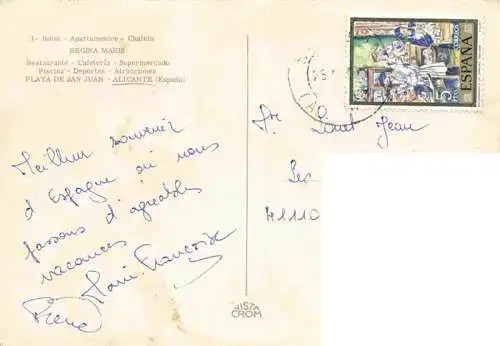 1 - Hotel - Apartamentos - Chalets
REGINA MARIS
Restaurante - Cafetería - Supermercado
Piscina - Deportes - Atracciones
PLAYA DE SAN JUAN - ALICANTE (España)
Meilleur souvenir
d'Espagne où nous
passons d'agréables
vacances
Marie Françoise
Pierre
ESPAÑA
CORREOS
5 PTAS
Jean
71110
VISTA
CROM